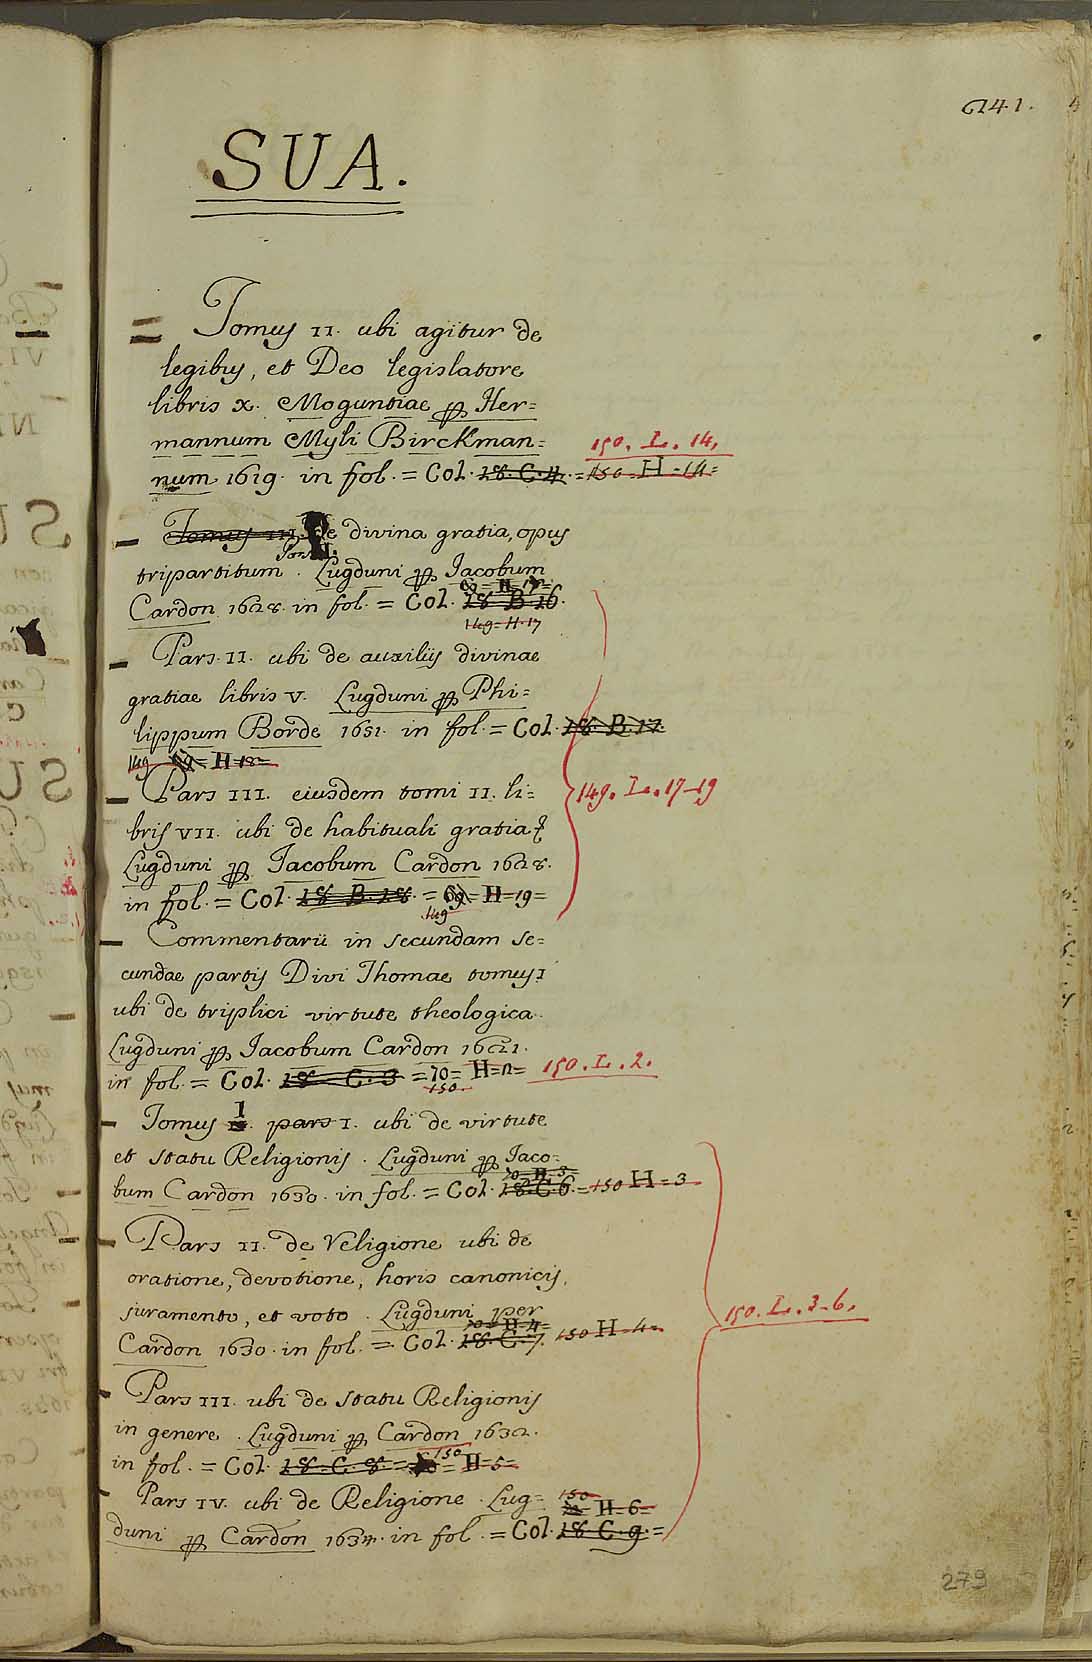 6141.
SUA.
= Tomus II. ubi agitur de
legibus, et Deo legislatore
libris X. Moguntiae per Her=
mannum Myli Birckman=
num 1619. in fol. = Col. 18. C. 4. = 150 = H = 14 =
150. L. 14.
- Tomus III. De divina gratia, opus
Pars I.
tripartitum. Lugduni per Jacobum
69 = H = 17 =
Cardon 1628. in fol. = Col. 18 B 16.
149 = H. 17
- Pars. II. ubi de auxiliis divinae
gratiae libris V. Lugduni per Phi=
lippum Borde 1651. in fol. = Col. 18. B. 17.
149 69 = H = 18 =
- Pars III. eiusdem tomi II. li=
149. L. 17-19
bris VII. ubi de habituali gratia
Lugduni per Jacobum Cardon 1628.
in fol. = Col. 18 B. 18. = 69 = H = 19 =
149
- Commentarii in secundam se=
cundae partis Divi Thomae tomus I
ubi de triplici virtute theologica.
Lugduni per Jacobum Cardon 1621.
in fol. = Col. 18 C. 3 = 70 = H = 2 = 150. L. 2.
150
- Tomus 1. pars I. ubi de virtute
et statu Religionis. Lugduni per Jaco=
70 = H = 3 =
bum Cardon 1630. in fol. = Col. 18. C. 6. = 150 H = 3
- Pars II. de Religione ubi de
oratione, devotione, horis canonicis,
juramento, et voto. Lugduni per
150. L. 3-6.
70 = H = 4 =
Cardon 1630. in fol. = Col. 18. C. 7. 150 H = 4 =
- Pars III. ubi de statu Religionis
in genere. Lugduni per Cardon 1632.
150
in fol. = Col. 18. C. 8. = = H = 5 =
- Pars IV. ubi de Religione. Lug=
150
H = 6 =
duni per Cardon 1634. in fol. = Col. 18 C. 9. =
279